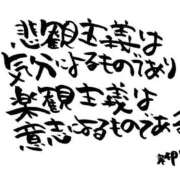 悲観主義は
気分によるものであり
楽観主義は
意志によるものである